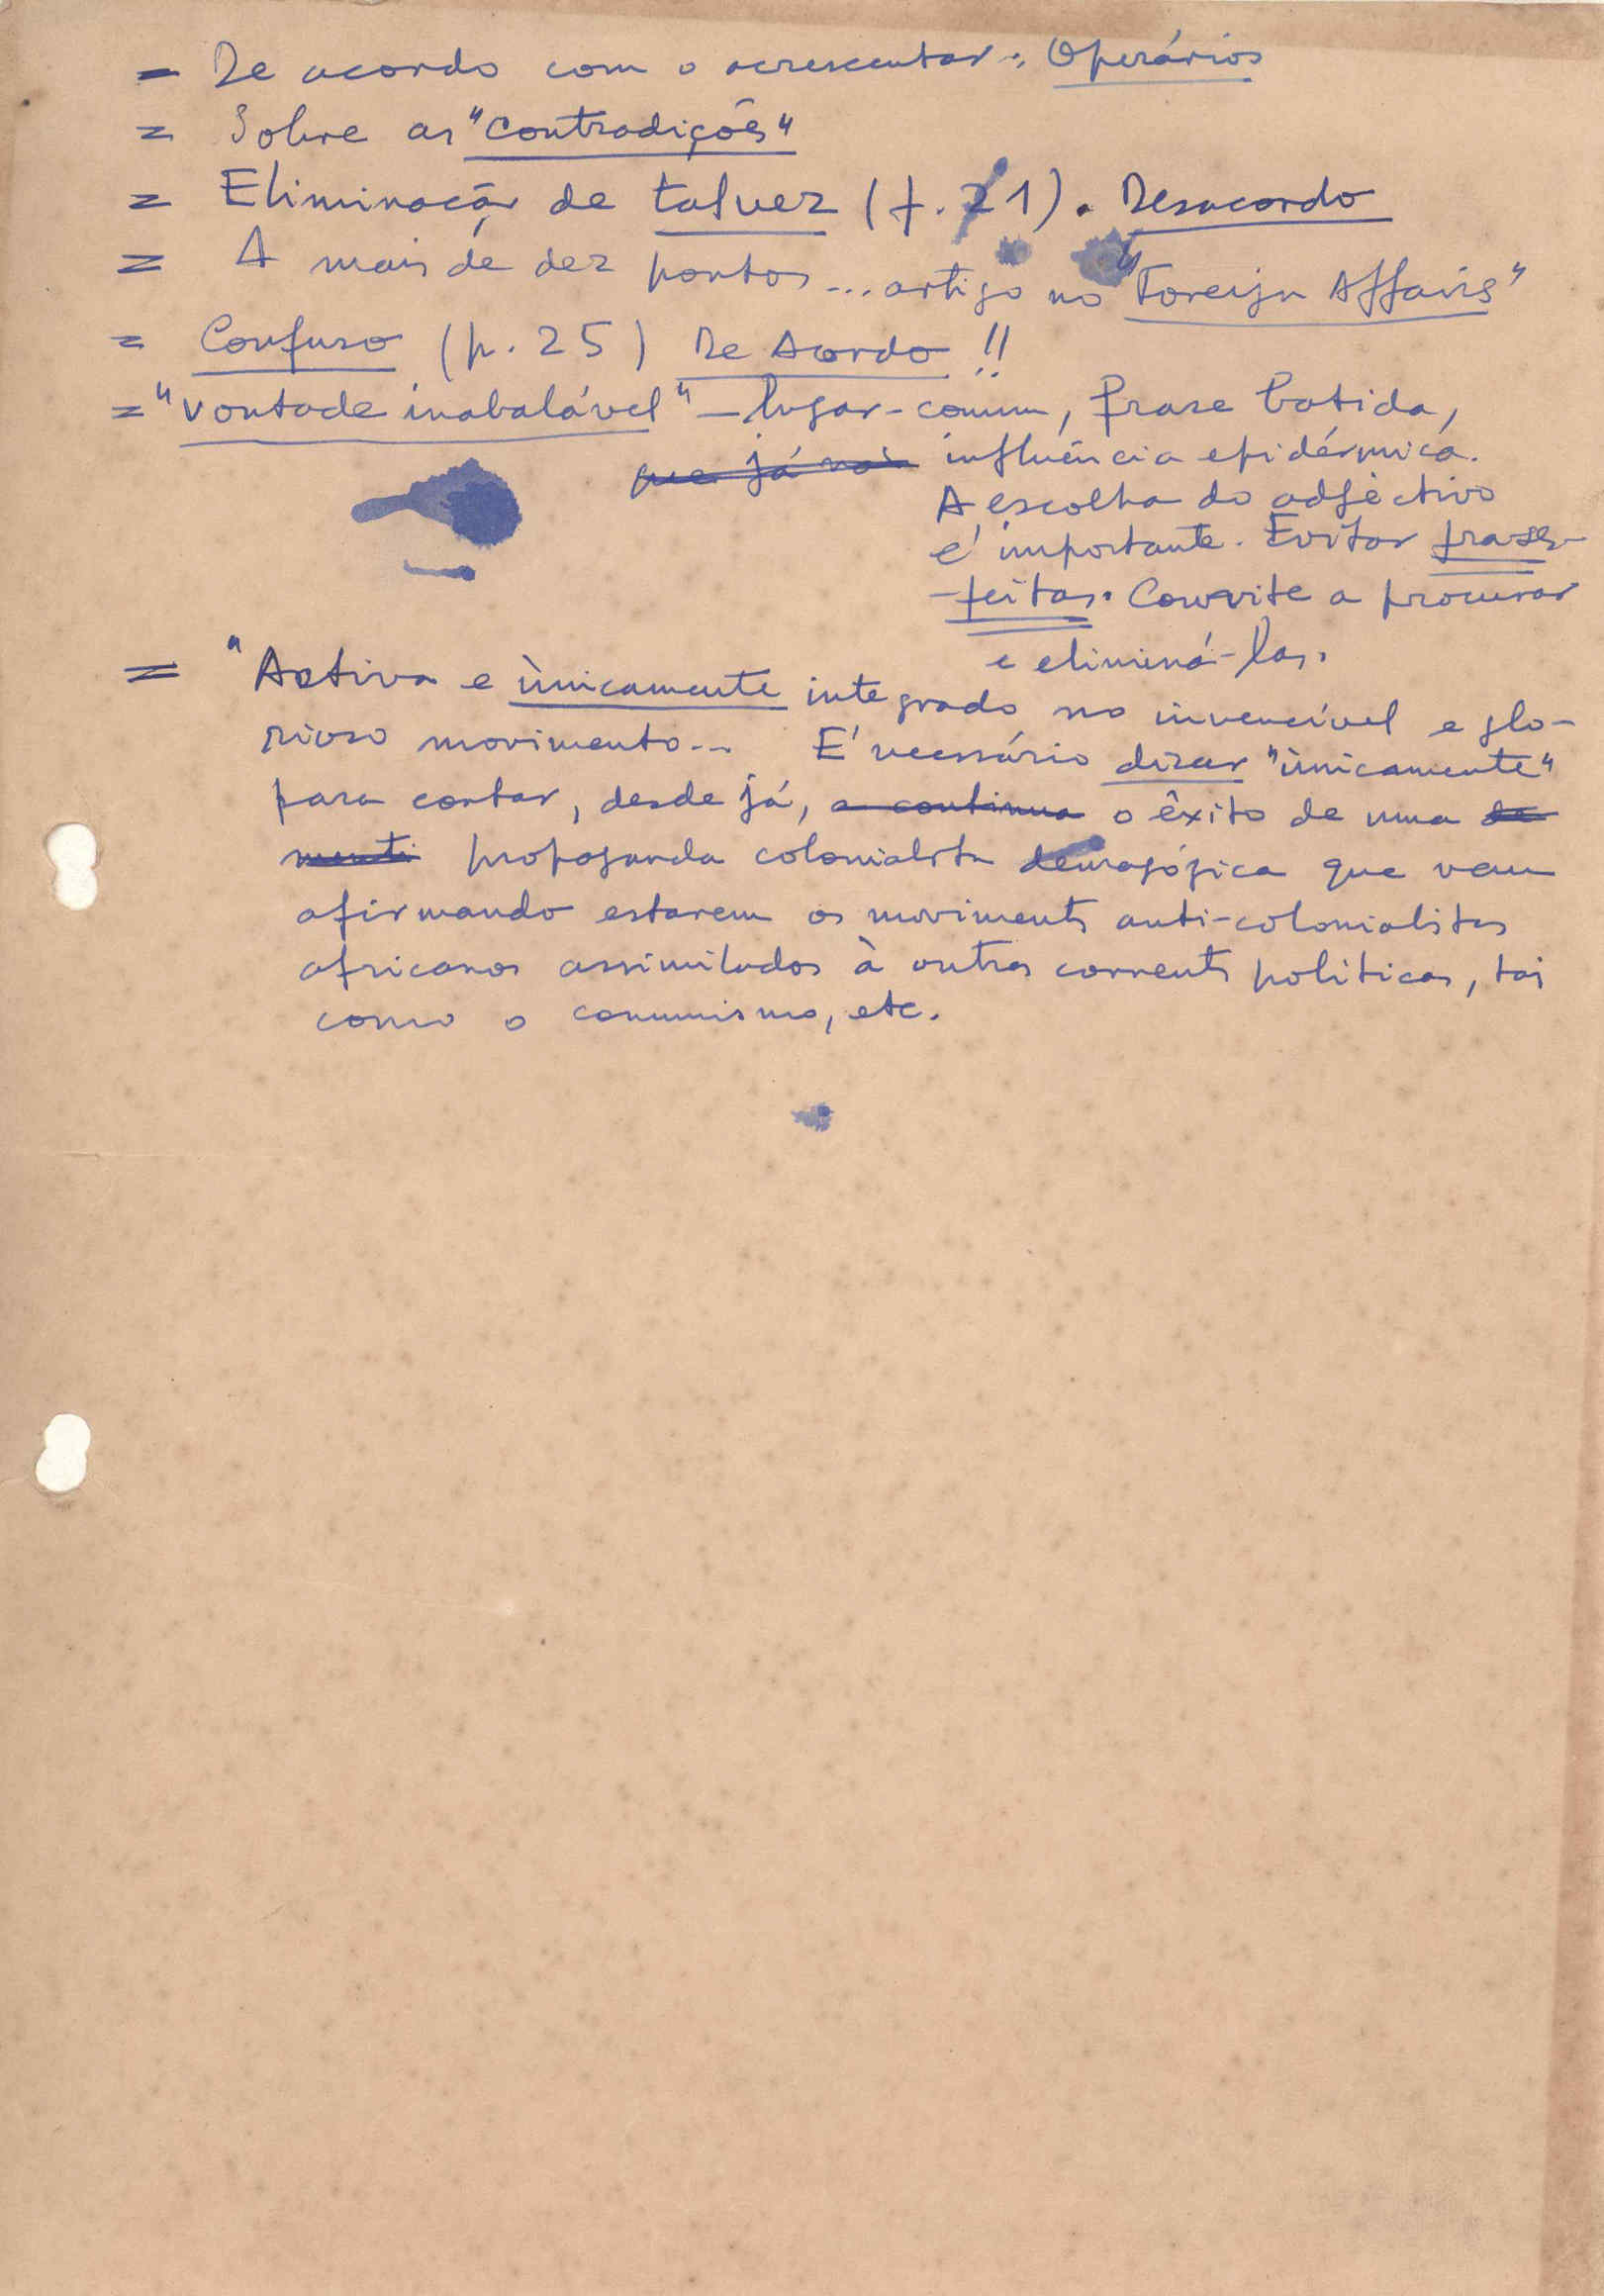 = De acordo com o acrescentar: Operários
= Sobre as "Contradições"
= Eliminação de talvez (f. 21). Desacordo
= A mais de dez pontos ... artigo no "Foreign Affairs"
= Confuso (p. 25) De Acordo!!
= "Vontade inabalável" – lugar-comum, frase batida,
que já nos influência epidérmica.
A escolha do adjectivo
é importante. Evitar frases-
-feitas. Convite a procurar
e eliminá-las.
= "Activa e ùnicamente integrado no invencível e glo-
rioso movimento... É necessário dizer "ùnicamente"
para cortar, desde já, a continua o êxito de uma de
menti propaganda colonialista demagógica que vem
afirmando estarem os movimentos anti-colonialistas
africanos assimilados à outras correntes políticas, tais
como o comunismo, etc.